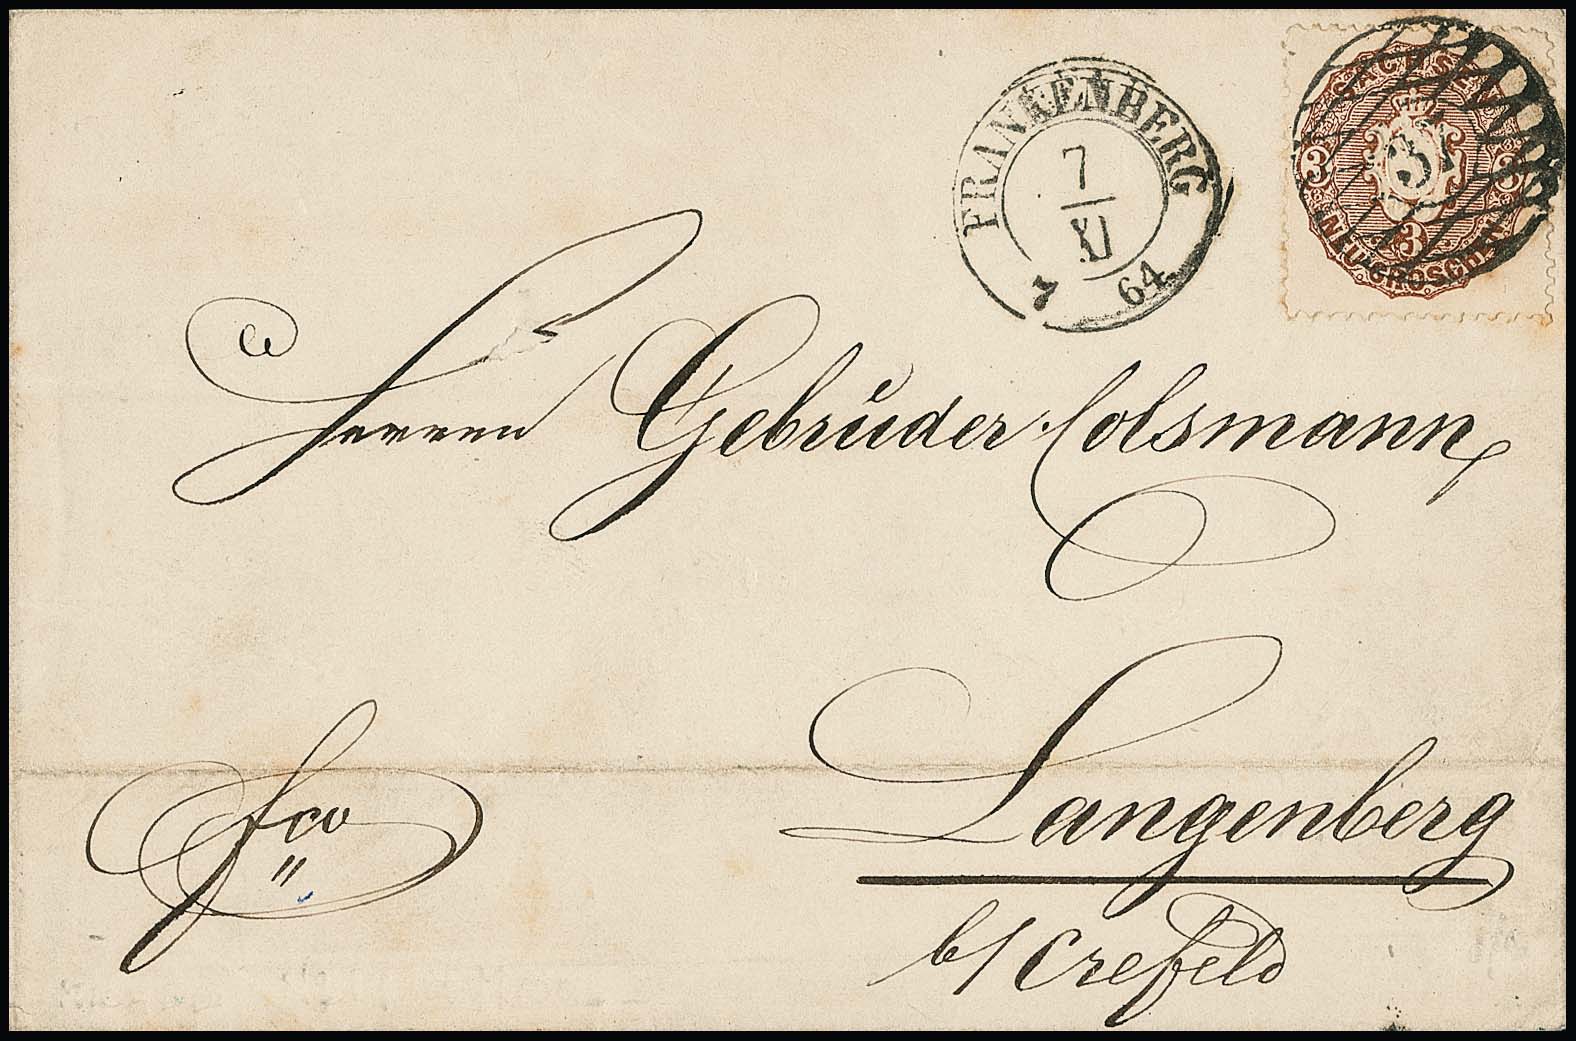 FRANKENBERG
7
XI
7 64
SACHSEN
3 3
3
NEU-GROSCHEN
Herren Gebrüder Colsmann,
fco
"
Langenberg
b/ Crefeld